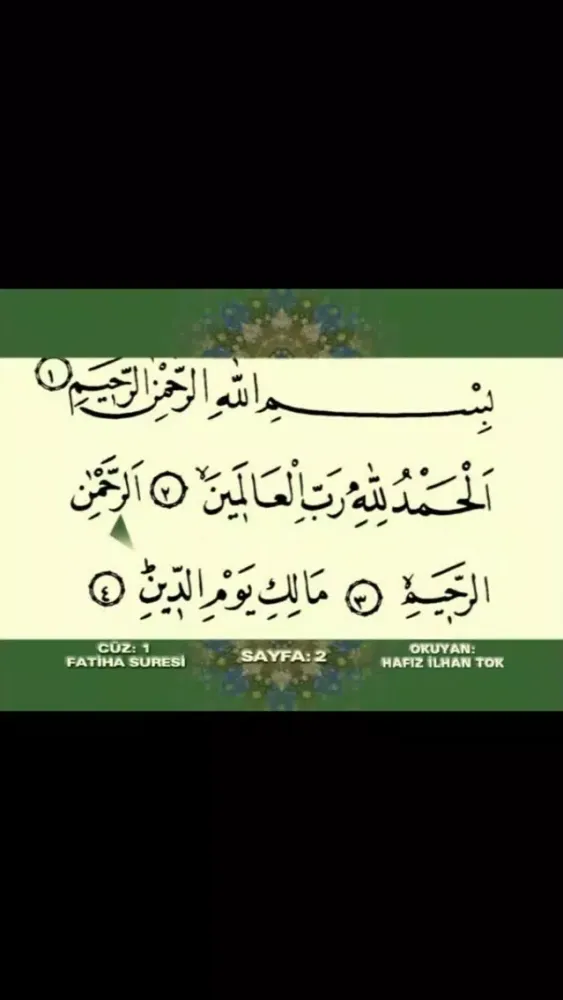 بِسْمِ اللّٰهِ الرَّحْمٰنِ الرَّحٖيمِ ١
اَلْحَمْدُ لِلّٰهِ رَبِّ الْعَالَمٖينَۙ ٢ اَلرَّحْمٰنِ
الرَّحٖيمِۙ ٣ مَالِكِ يَوْمِ الدّٖينِؕ ٤
CÜZ: 1
FATİHA SURESİ
SAYFA: 2
OKUYAN:
HAFIZ İLHAN TOK